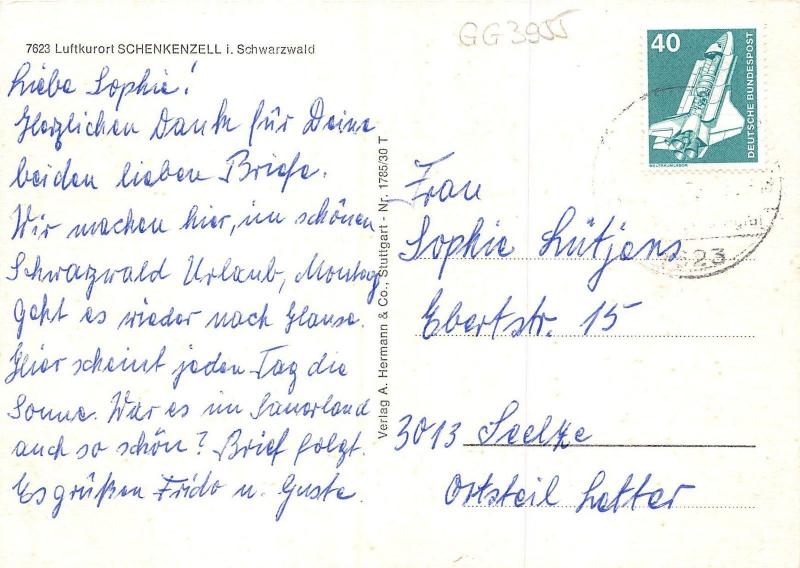 7623 Luftkurort SCHENKENZELL i. Schwarzwald
Liebe Sophie!
Herzlichen Dank für Deine
beiden lieben Briefe.
Wir machen hier, im schönen
Schwarzwald Urlaub, Montag
geht es wieder nach Hause.
Hier scheint jeden Tag die
Sonne. War es im Sauerland
auch so schön? Brief folgt.
Es grüßen Frido u. Guste.
Verlag A. Hermann & Co., Stuttgart - Nr. 1785/30 T
GG3955
40
DEUTSCHE BUNDESPOST
WELTRAUMLABOR
Frau
Sophie Lütjens
Ebertstr. 15
3013 Seelze
Ortsteil Letter